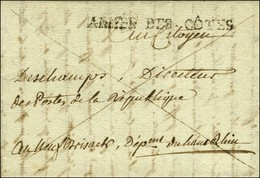 ARMÉE DES CÔTES
au Citoyen
Deschamps, Directeur
des Postes de la République
au Neuf Brisack, Dép.ment du haut Rhin